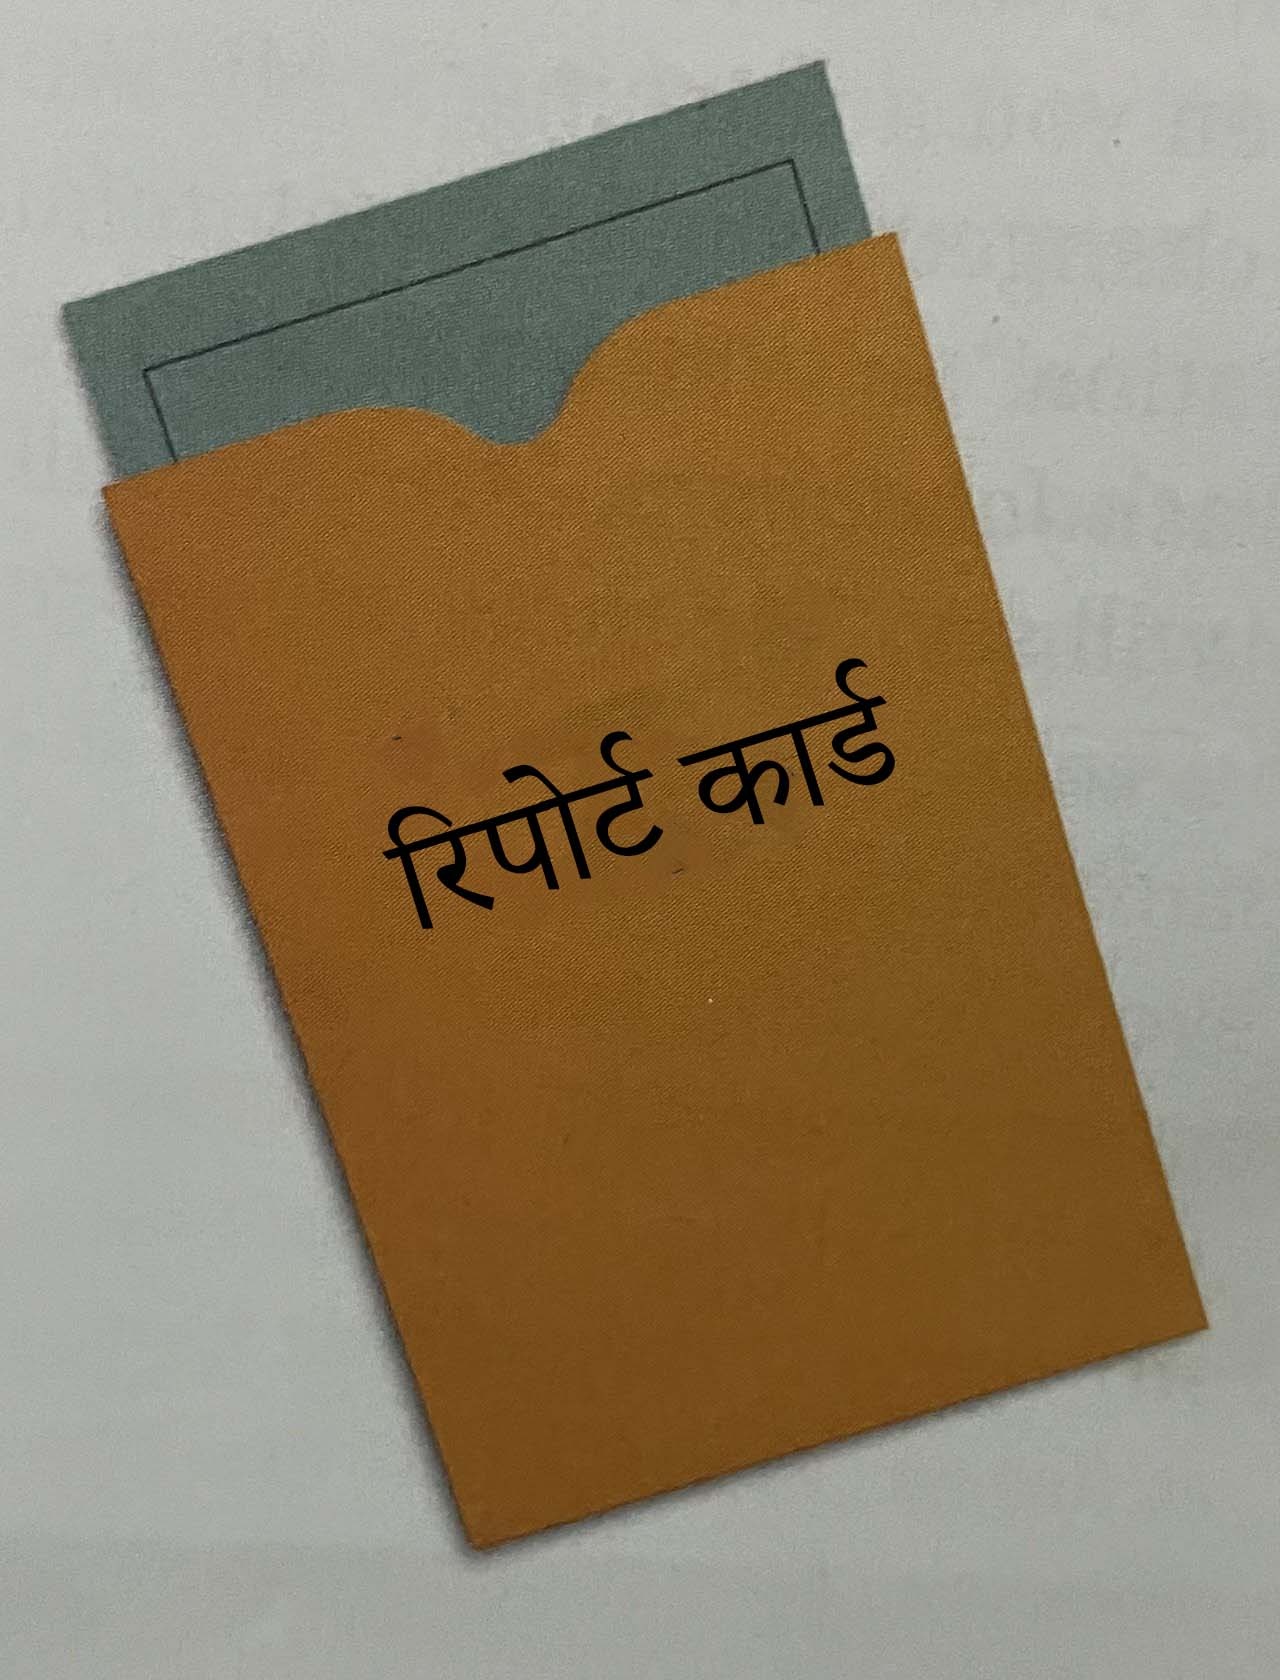 रिपोर्ट कार्ड